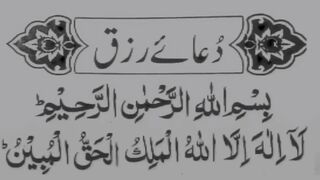 دُعائے رزق
بِسْمِ اللهِ الرَّحْمٰنِ الرَّحِيْمِ
لَآ اِلٰهَ اِلَّا اللهُ الْمَلِكُ الْحَقُّ الْمُبِيْنُ